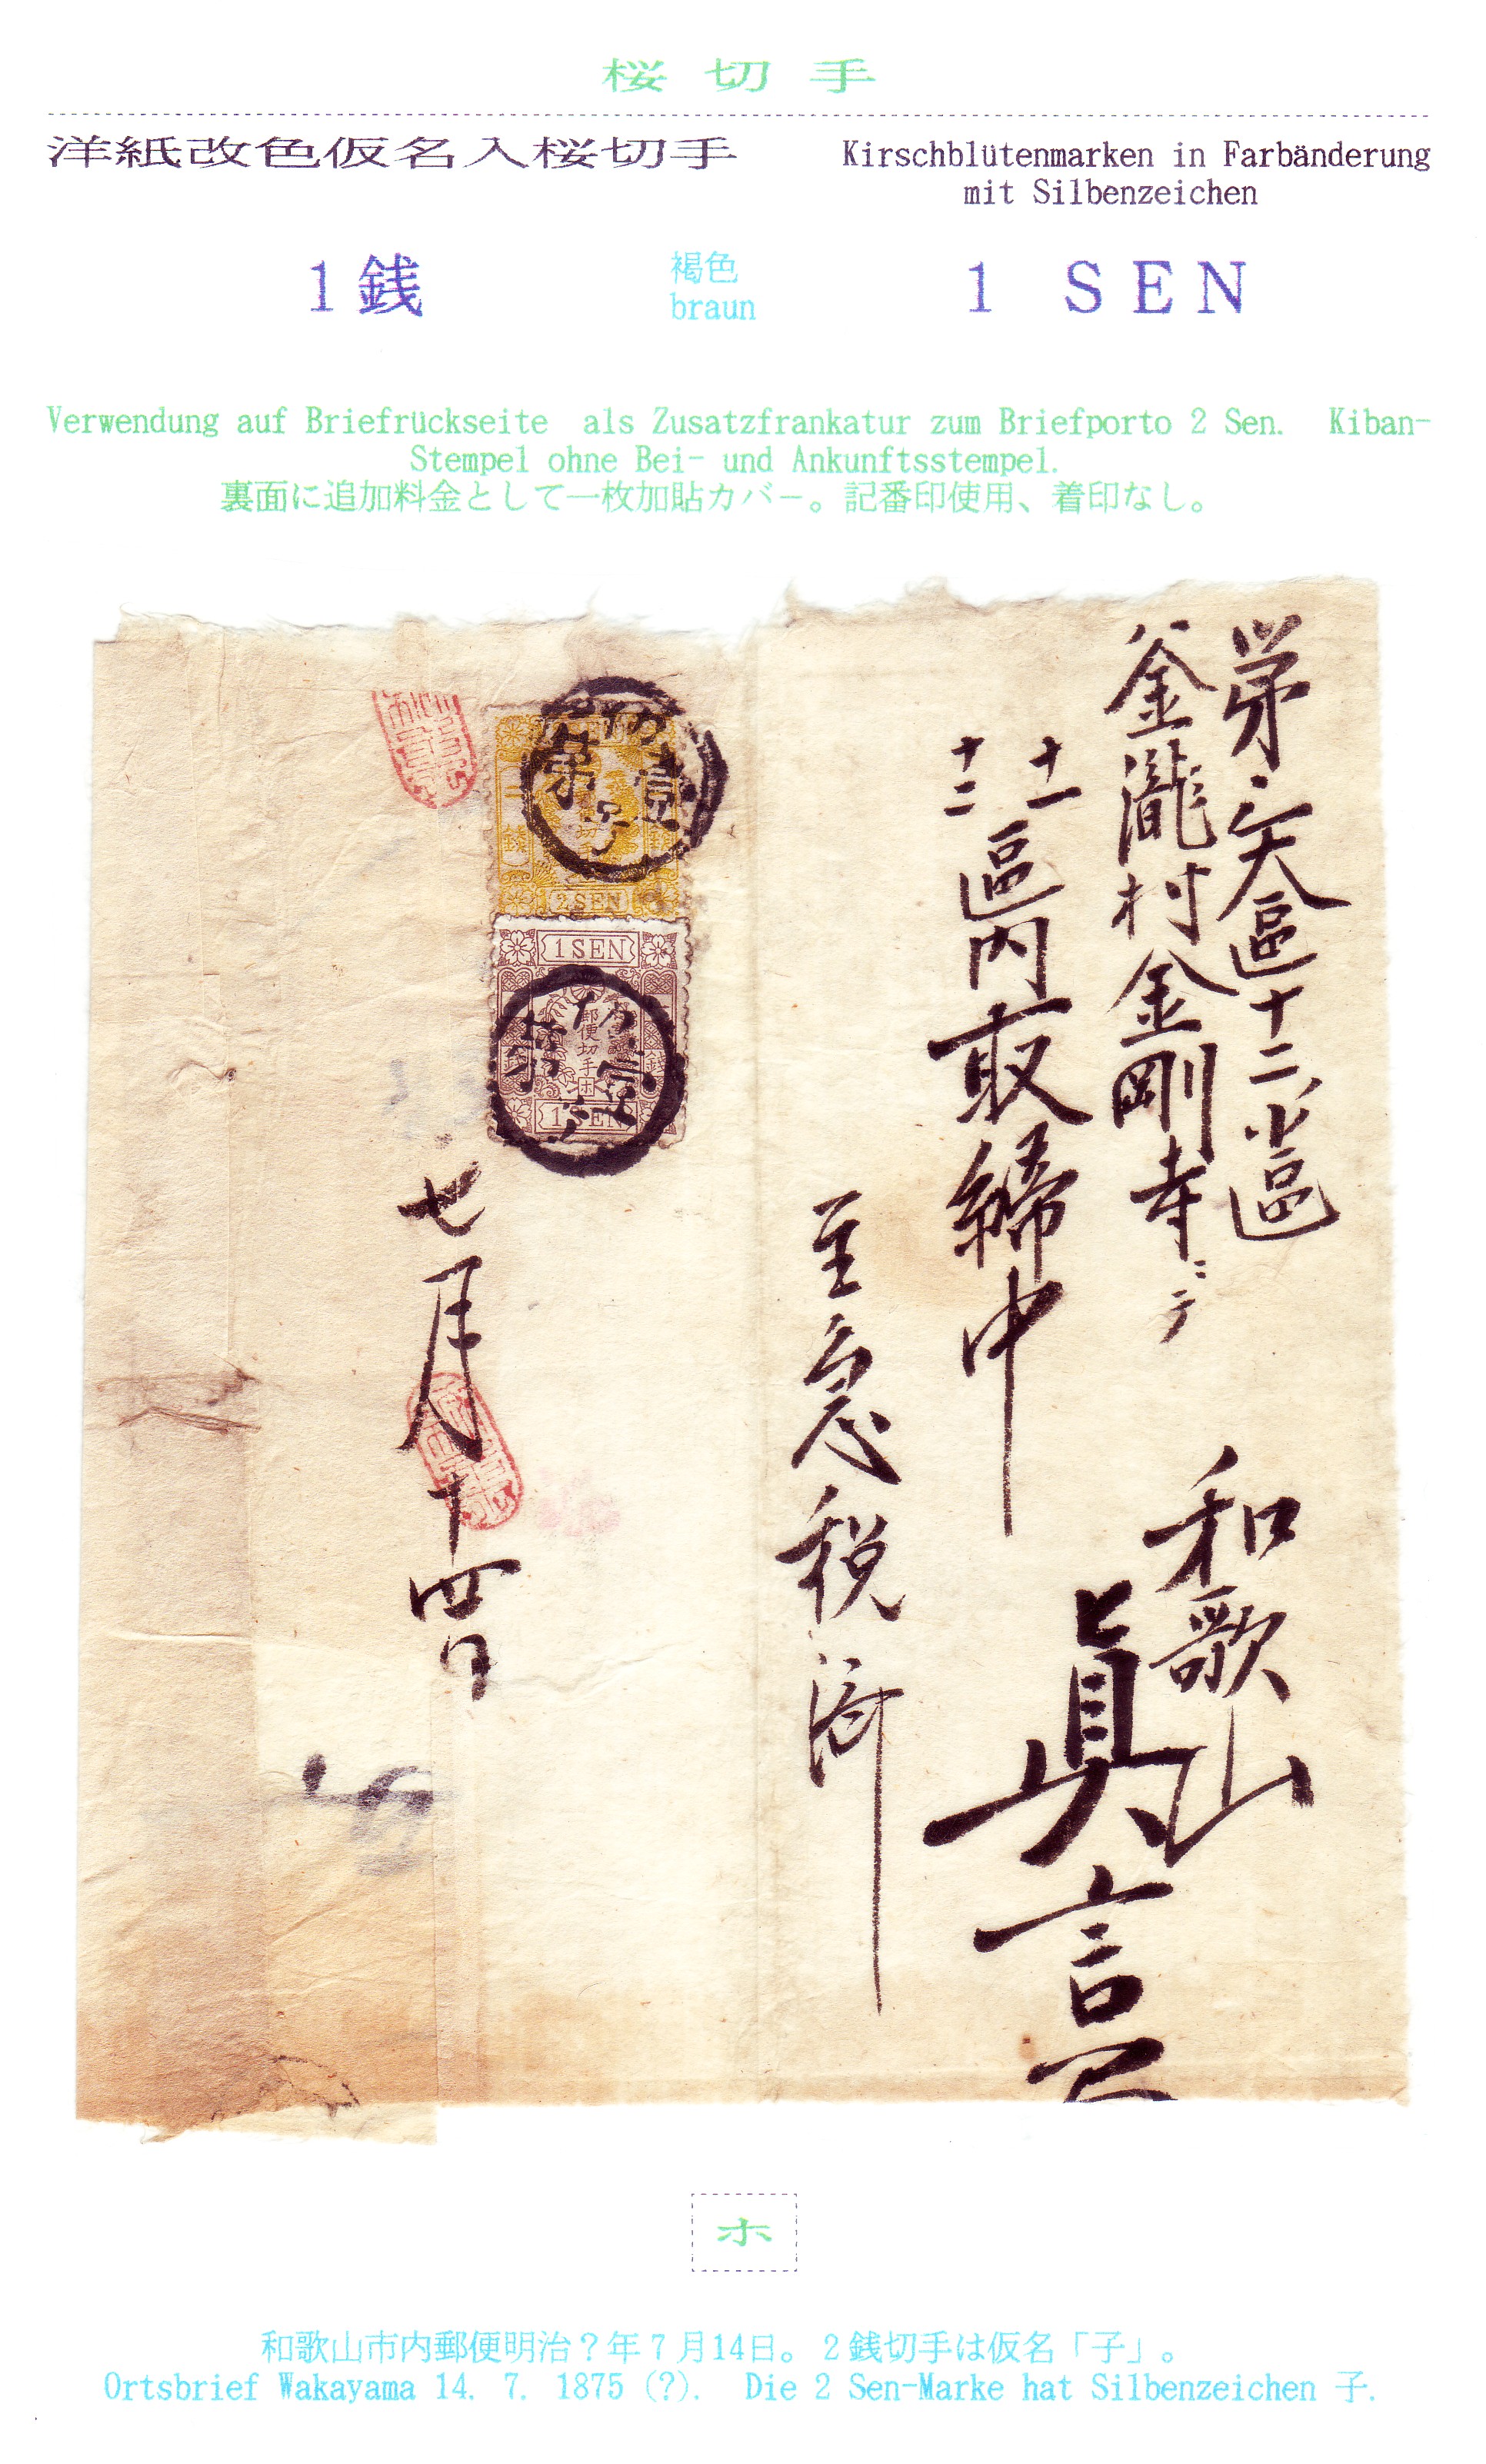 桜切手
洋紙改色仮名入桜切手
Kirschblütenmarken in Farbänderung
mit Silbenzeichen
1銭
褐色
braun
1 SEN
Verwendung auf Briefrückseite als Zusatzfrankatur zum Briefporto 2 Sen. Kiban-
Stempel ohne Bei- und Ankunftsstempel.
裏面に追加料金として一枚加貼カバー。記番印使用、着印なし。
十二小區
釜瀧村金剛寺ニテ
十一
十二
區内取締中
和歌山
眞言
至急税済
2 SEN
1 SEN
郵便切手
1 SEN
七月十四日
ホ
和歌山市内郵便明治?年7月14日。2銭切手は仮名「子」。
Ortsbrief Wakayama 14. 7. 1875 (?). Die 2 Sen-Marke hat Silbenzeichen 子.